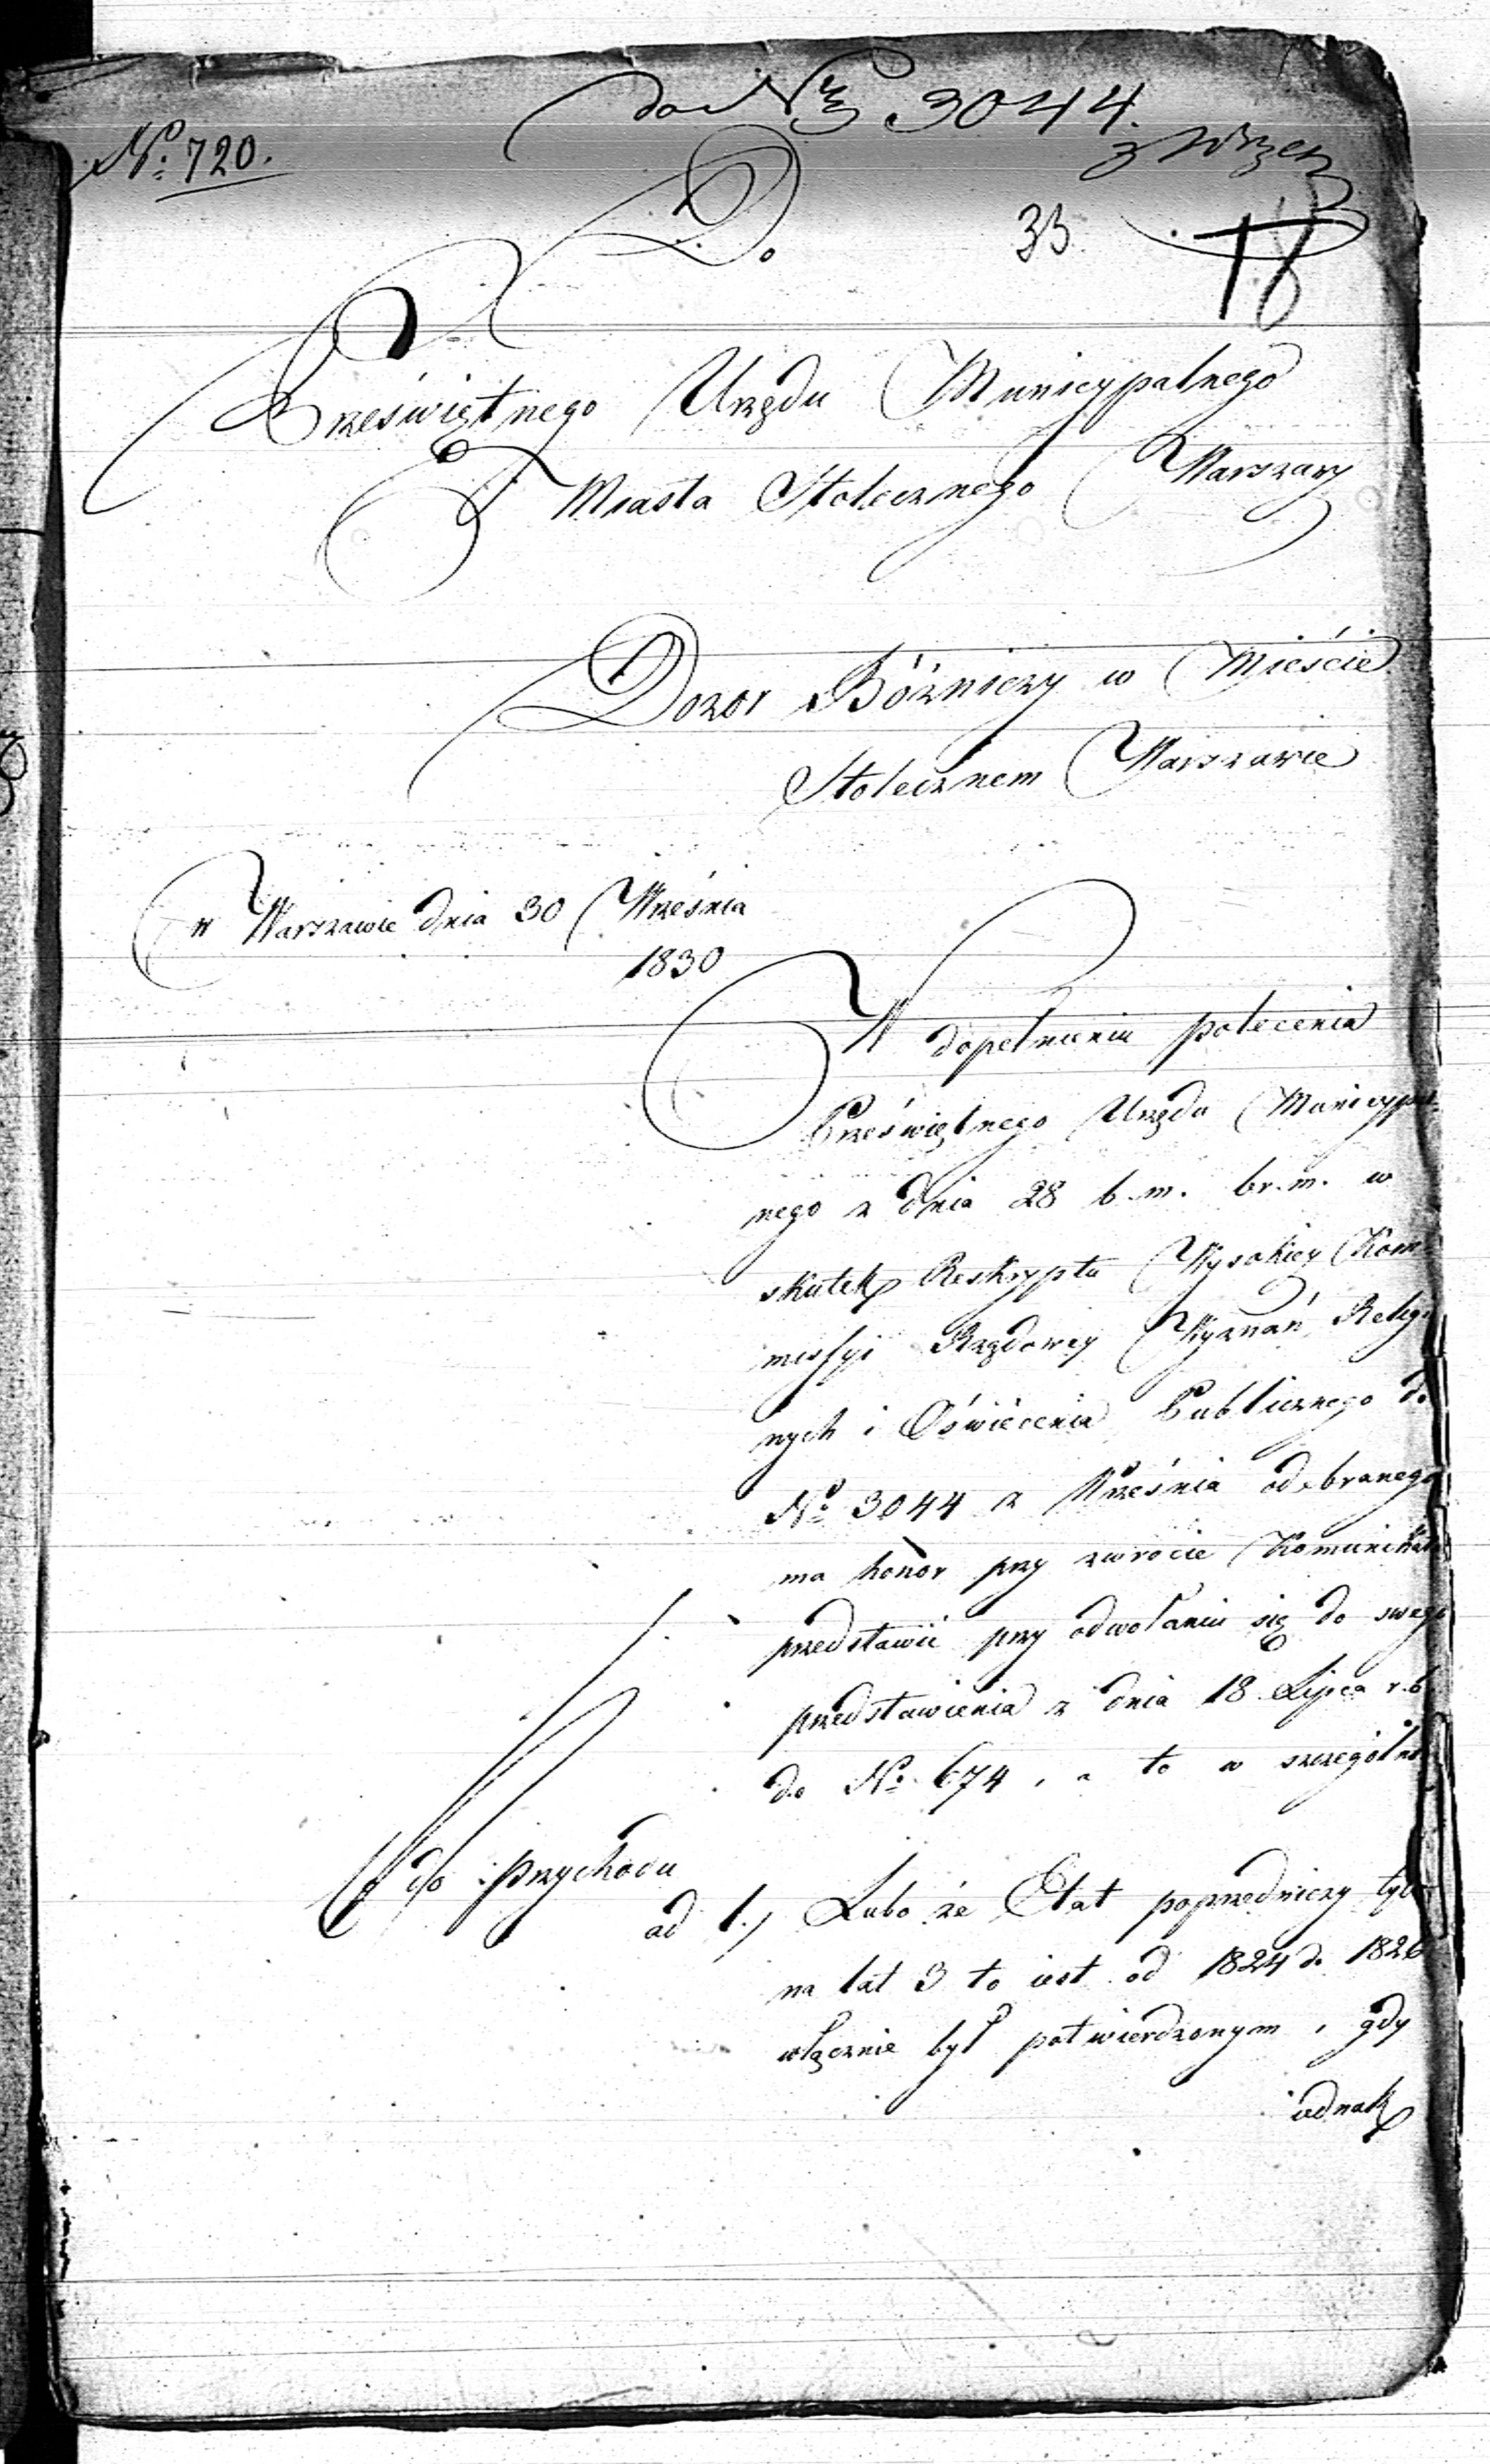 do N 3044.
z Wrzes
No. 720.
Do
33
18
Przeświętnego Urzędu Municypalnego
Miasta Stołecznego Warszawy
Dozor Bóżniczy w Mieście
Stołecznem Warszawie
w Warszawie dnia 30 Września
1830
W dopełnieniu polecenia
Przeświętnego Urzędu Municypal
nego z dnia 28 b.m. br.m. w
skutek Reskryptu Wysokiey Kom
missyi Rządowey Wyznań Religi
nych i Oświecenia Publicznego do
No. 3044 z Września odebranego
ma honor przy zwrocie Komunikatu
przedstawić przy odwołaniu się do swego
przedstawienia z dnia 18 Lipca r.b.
do No. 674, a to w szczególno
do przychodu
ad 1.) Lubo że Etat poprzedniczy tylko
na lat 3 to iest od 1824 do 1826
włącznie był potwierdzonym, gdy
iednak